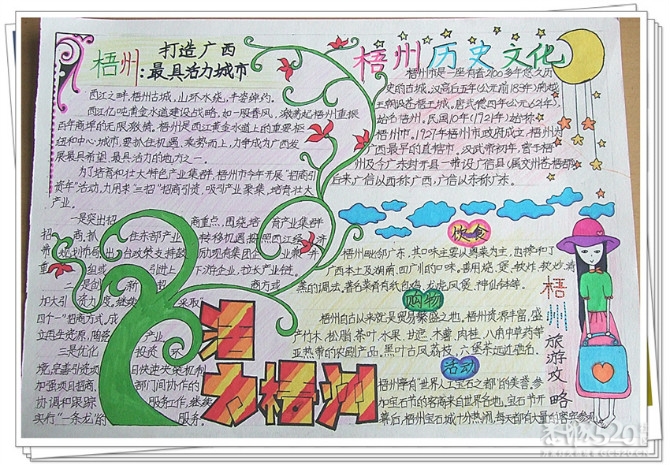 梧州:
打造广西
最具活力城市
西江之畔,梧州古城,山环水绕,千姿绰约。
西江亿吨黄金水道建设战略,如一股春风,激荡起梧州重振
百年商埠的无限激情。梧州是西江黄金水道上的重要枢
纽和中心城市,要抓住机遇,乘势而上,力争成为广西发
展最具希望、最具活力的地方之一。
为了培育和壮大特色产业集群,梧州市今年开展"招商引
资年"活动,力用末"三招"招商引资,吸引产业聚集,培育壮大
产业。
一是突出招商重点,围绕培育产业集群
招商,抓住东部产业转移机遇
二是创新招商方式
加大引资力度,继续采取
四个一"招商方式,成
立再生资源,陶瓷产业
三是优化投资环
境,完善引资项目快速决策机制
加强项目招商部门间协作的
协调和跟踪服务工作,继续
实行"一条龙"的服务。
梧州历史文化
梧州市是一座有着2100多年悠久历
史的古城,汉高后五年(公元前183年)南越
王赵佗苍梧王城。唐武德四年(公元621年)
始名梧州。民国10年(1721年)始称
梧州市,1927年梧州市政府成立。梧州为
广西最早的直辖市。汉武帝初年,官于梧
州及今广东封开县一带设广信县(属交州苍梧郡)
后来,广信以西称广西,广信以东称广东。
饮食
梧州毗邻广东,其口味主要以粤菜为主,也掺和了
广西本土及湖南、四广州的口味。善用烧、煲、软炸、软炒、清
蒸的调法。著名菜肴有纸包鸡、龙虎凤煲、神仙钵等。
购物
梧州自古以来就是贸易繁盛之地,梧州资源丰富,盛
产竹木、松脂、茶叶、水果、甘蔗、木薯、肉桂、八角中草药等
亚热带的农副产品,黑叶古凤荔枝、六堡茶远近驰名。
活动
梧州享有"世界人工宝石之都"的美誉,参
加宝石节的客商来自世界各地,宝石节开
幕后,梧州宝石城十分热闹,每天都有大量
梧州旅游攻略
古梧州
520